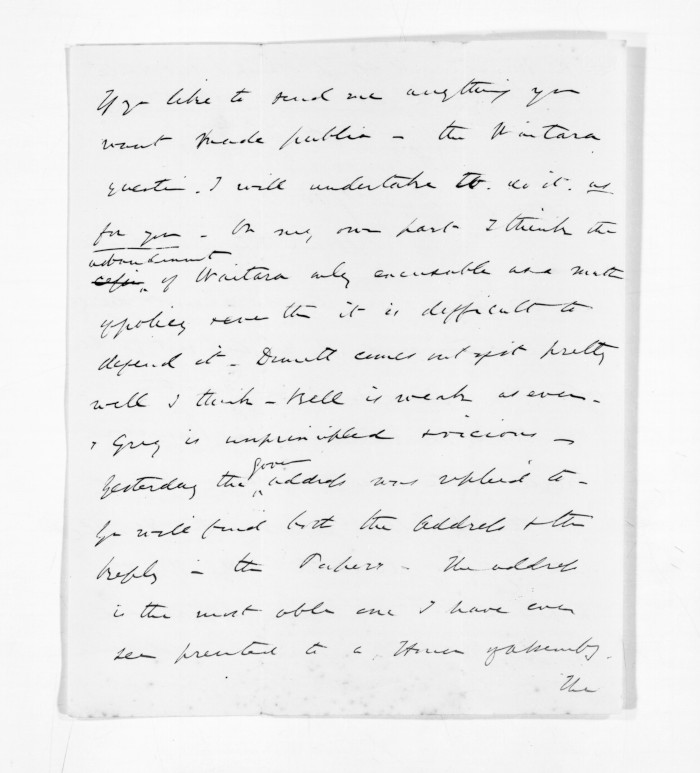 If you like to send me anything you
want made public in the Waitara
question. I will undertake to. do it. as
for you - On my own part I think the
abandonment
of Waitara only excusable as a matter
of policy save tho it is difficult to
defend it - Domett comes out of it pretty
well I think - Bell is weak as ever -
& Grey is unprincipled & vicious -
Gover
Yesterday the address was replied to -
You will find both the Address & the
Reply in the Papers - The address
is the most able one I have ever
seen presented to a House of Assembly.
The